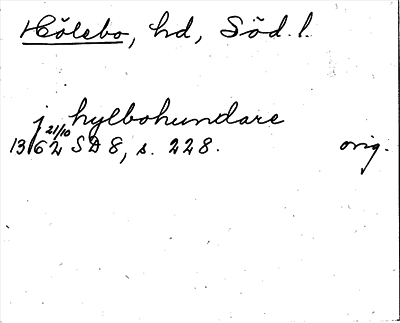 Hölebo, hd, Söd. l.
j hylbohundare
1362 21/10 SD 8, s. 228. orig.